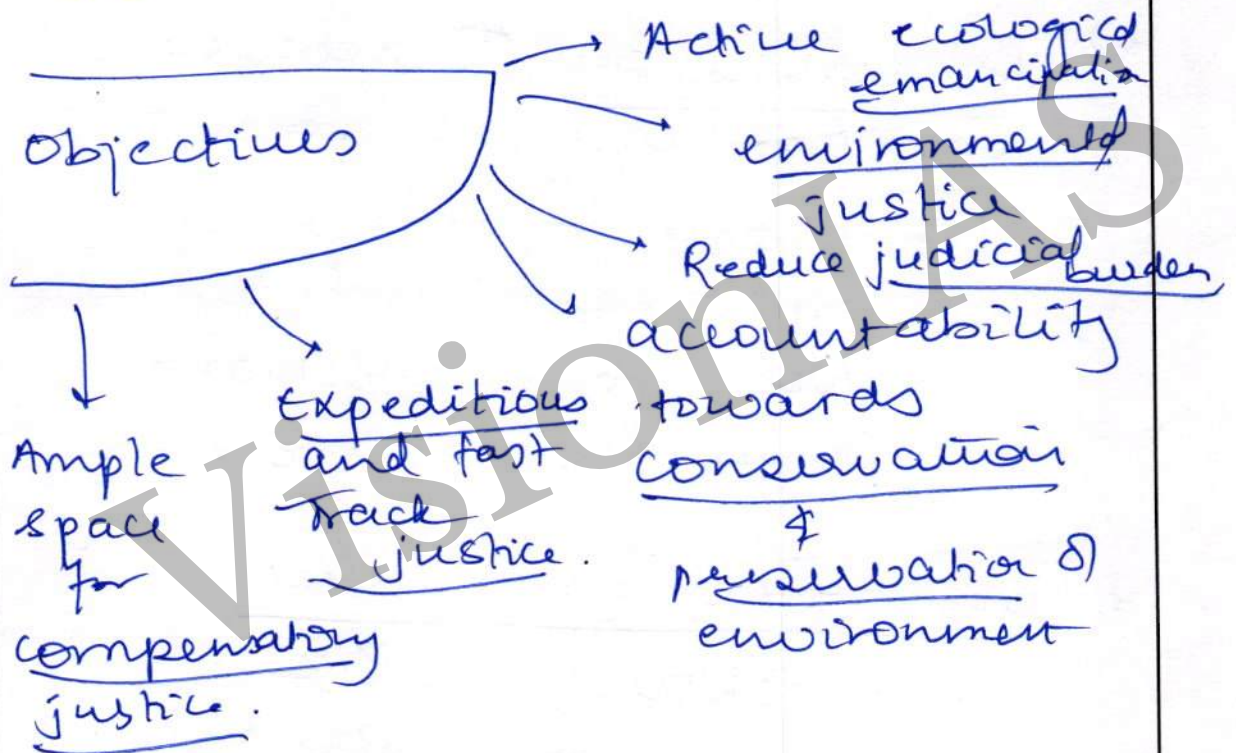 Objectives
Active ecological
emancipation
environmental
justice
Reduce judicial burden
accountability
towards
conservation
&
preservation of
environment
Expeditious
and fast
Track
justice.
Ample
space
for
compensatory
justice.
VisionIAS